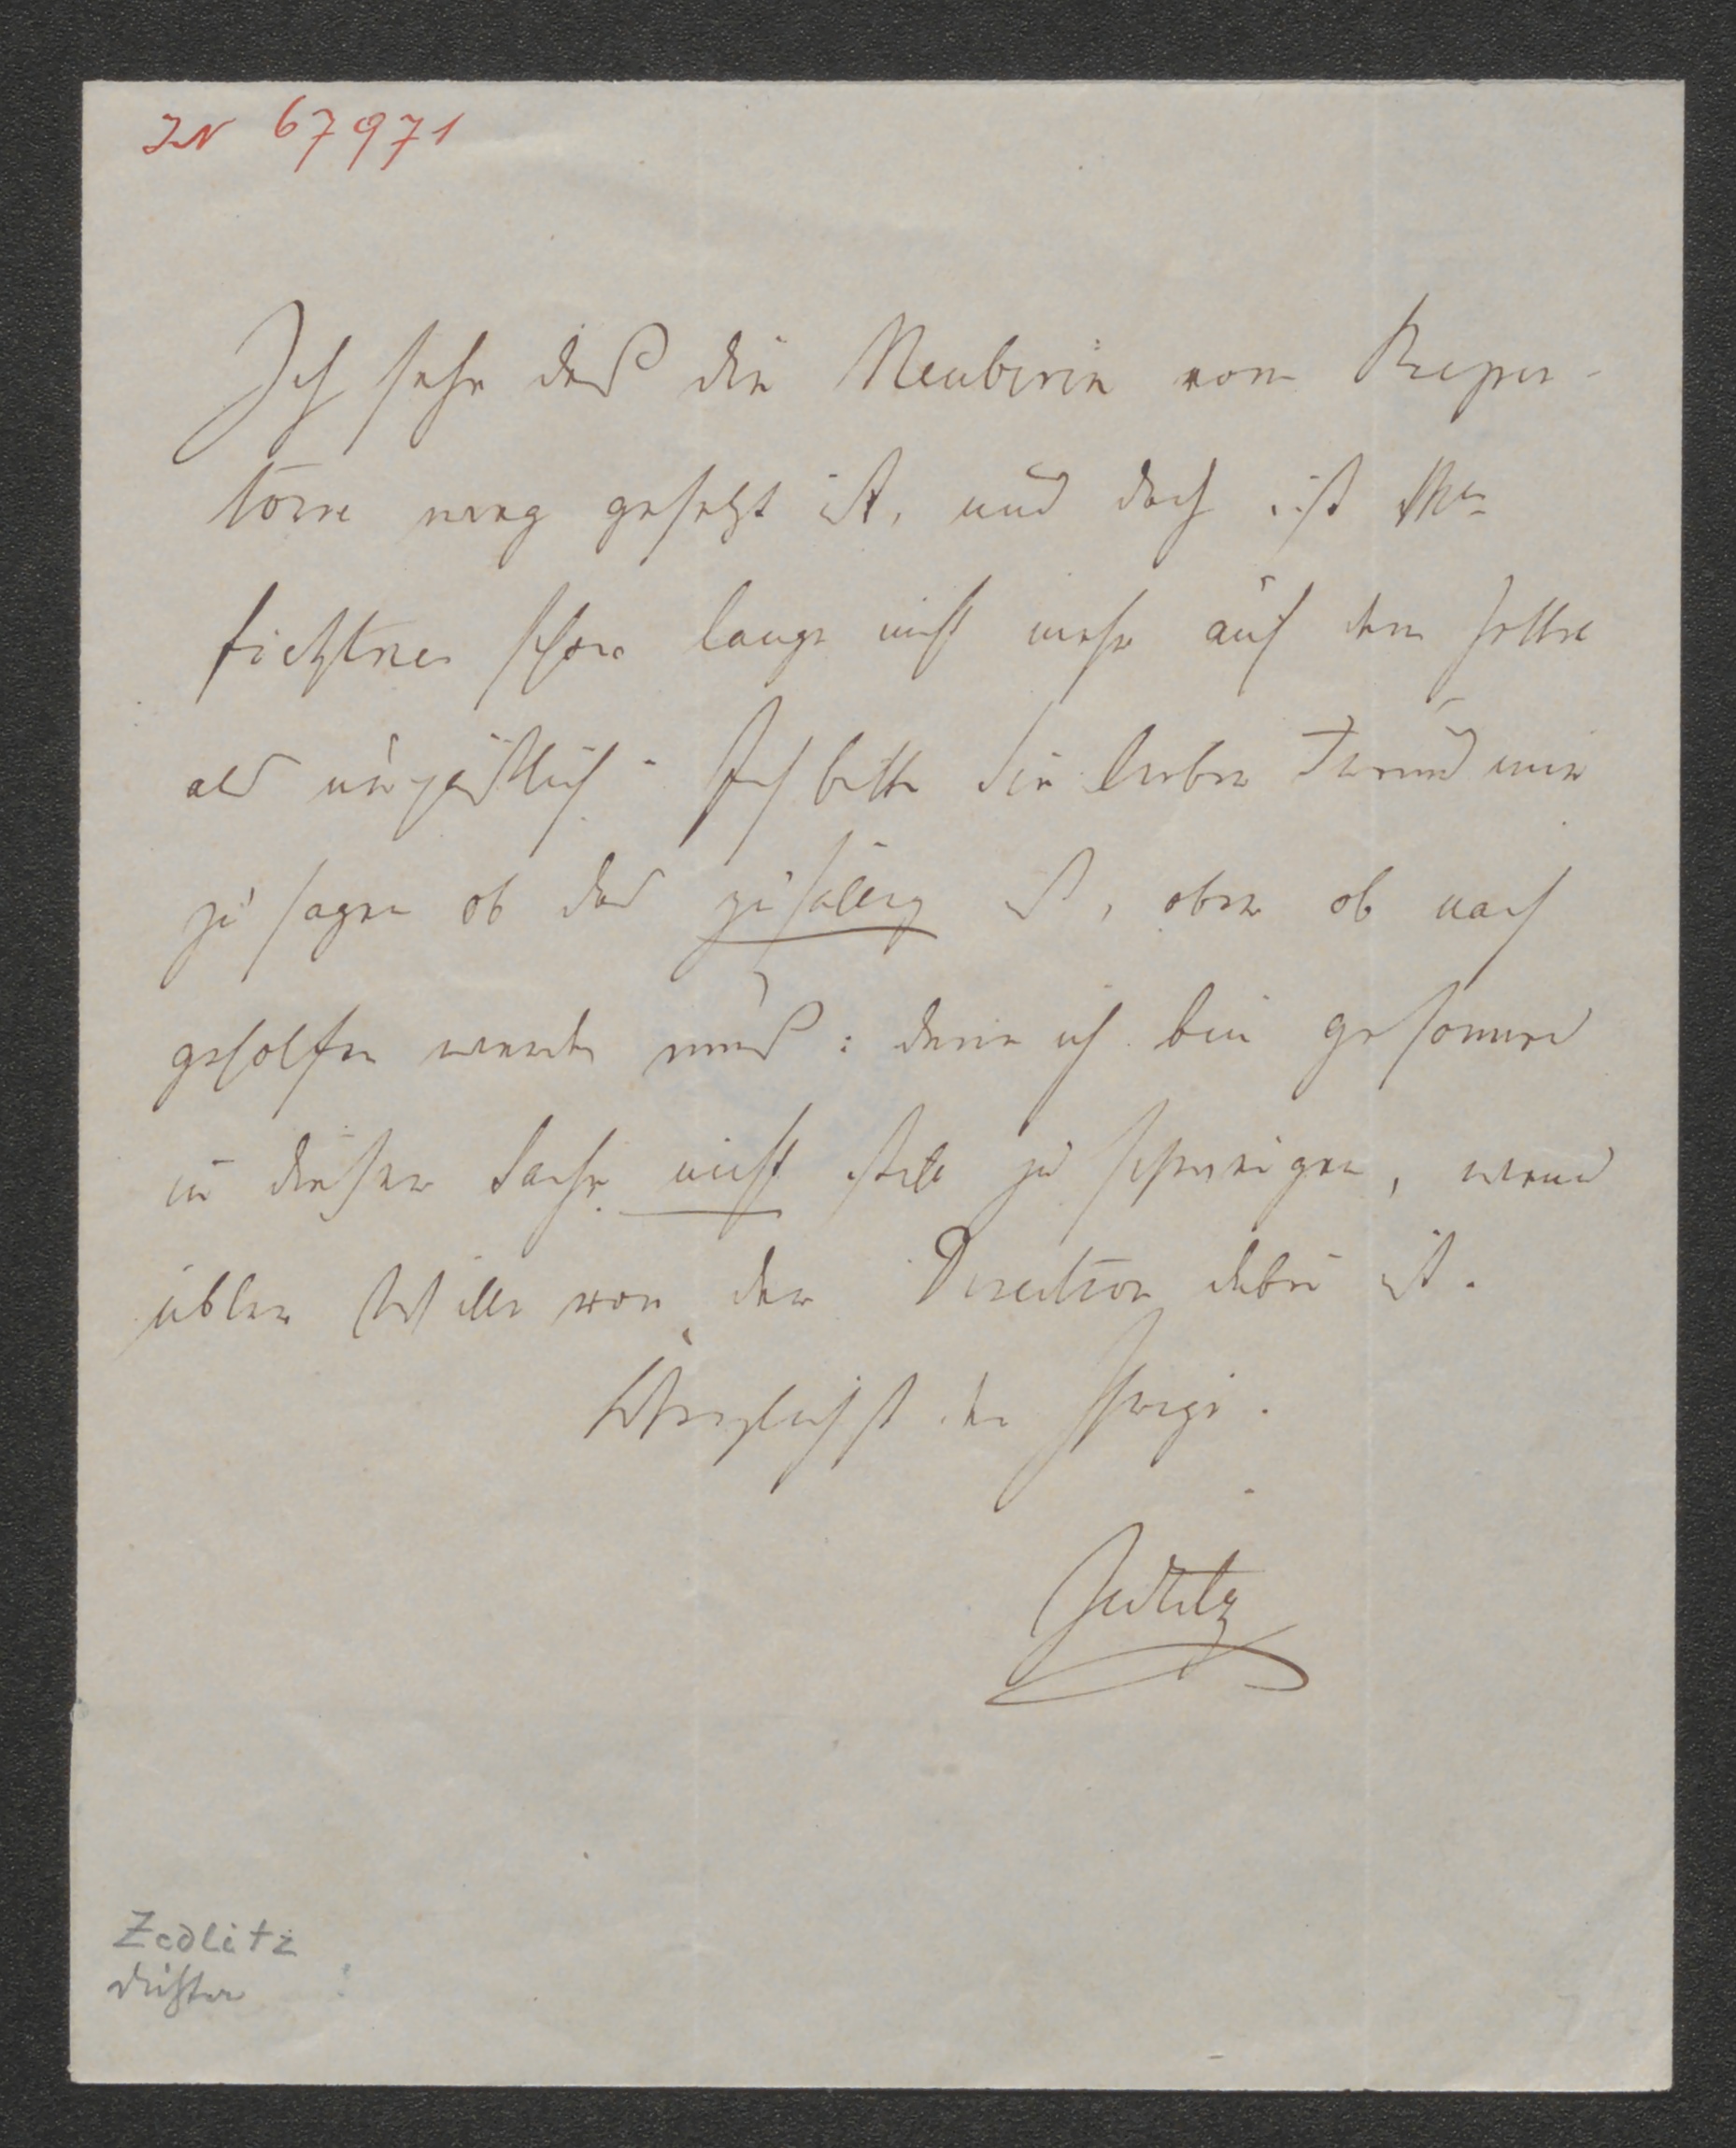 IN 67971
Ich sehe daß die Neuberin vom Reper-
toire weg gesetzt ist, und doch ist Me
Fichtner schon lange nicht mehr auf dem Zettel
als unpäßlich. Ich bitte Sie lieber Freund mir
zu sagen ob das zufällig ist, oder ob nach
geholfen werden muß: denn ich bin gesonnen
in dieser Sache nicht still zu schweigen, wenn
übler Wille von der Direction dabei ist.
Herzlichst der Ihrige.
Zedlitz
Zedlitz
Dichter